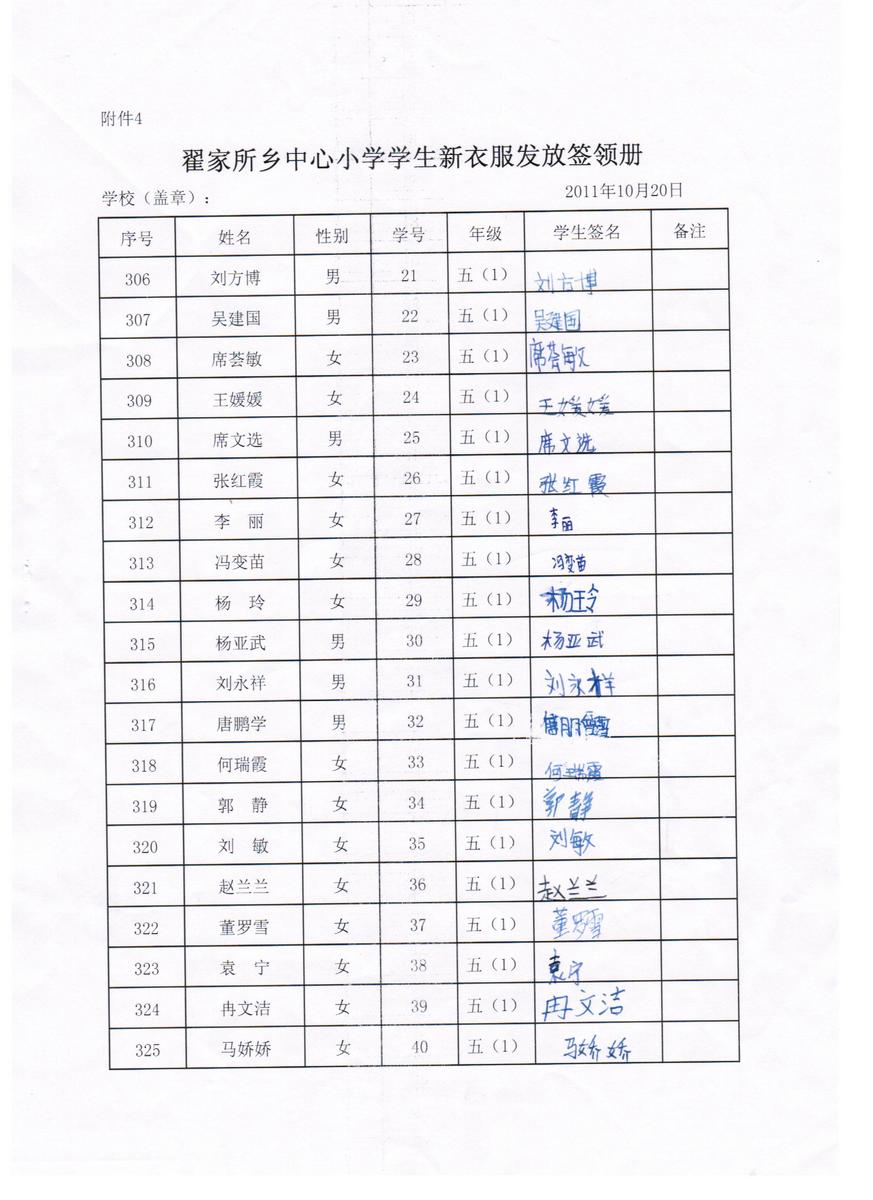 附件4
翟家所乡中心小学学生新衣服发放签领册
学校（盖章）： 2011年10月20日
序号 姓名 性别 学号 年级 学生签名 备注
306 刘方博 男 21 五（1） 刘方博
307 吴建国 男 22 五（1） 吴建国
308 席荟敏 女 23 五（1） 席荟敏
309 王媛媛 女 24 五（1） 王媛媛
310 席文选 男 25 五（1） 席文选
311 张红霞 女 26 五（1） 张红霞
312 李 丽 女 27 五（1） 李丽
313 冯变苗 女 28 五（1） 冯变苗
314 杨 玲 女 29 五（1） 杨玲
315 杨亚武 男 30 五（1） 杨亚武
316 刘永祥 男 31 五（1） 刘永祥
317 唐鹏学 男 32 五（1） 唐鹏学
318 何瑞霞 女 33 五（1） 何瑞霞
319 郭 静 女 34 五（1） 郭静
320 刘 敏 女 35 五（1） 刘敏
321 赵兰兰 女 36 五（1） 赵兰兰
322 董罗雪 女 37 五（1） 董罗雪
323 袁 宁 女 38 五（1） 袁宁
324 冉文洁 女 39 五（1） 冉文洁
325 马娇娇 女 40 五（1） 马娇娇